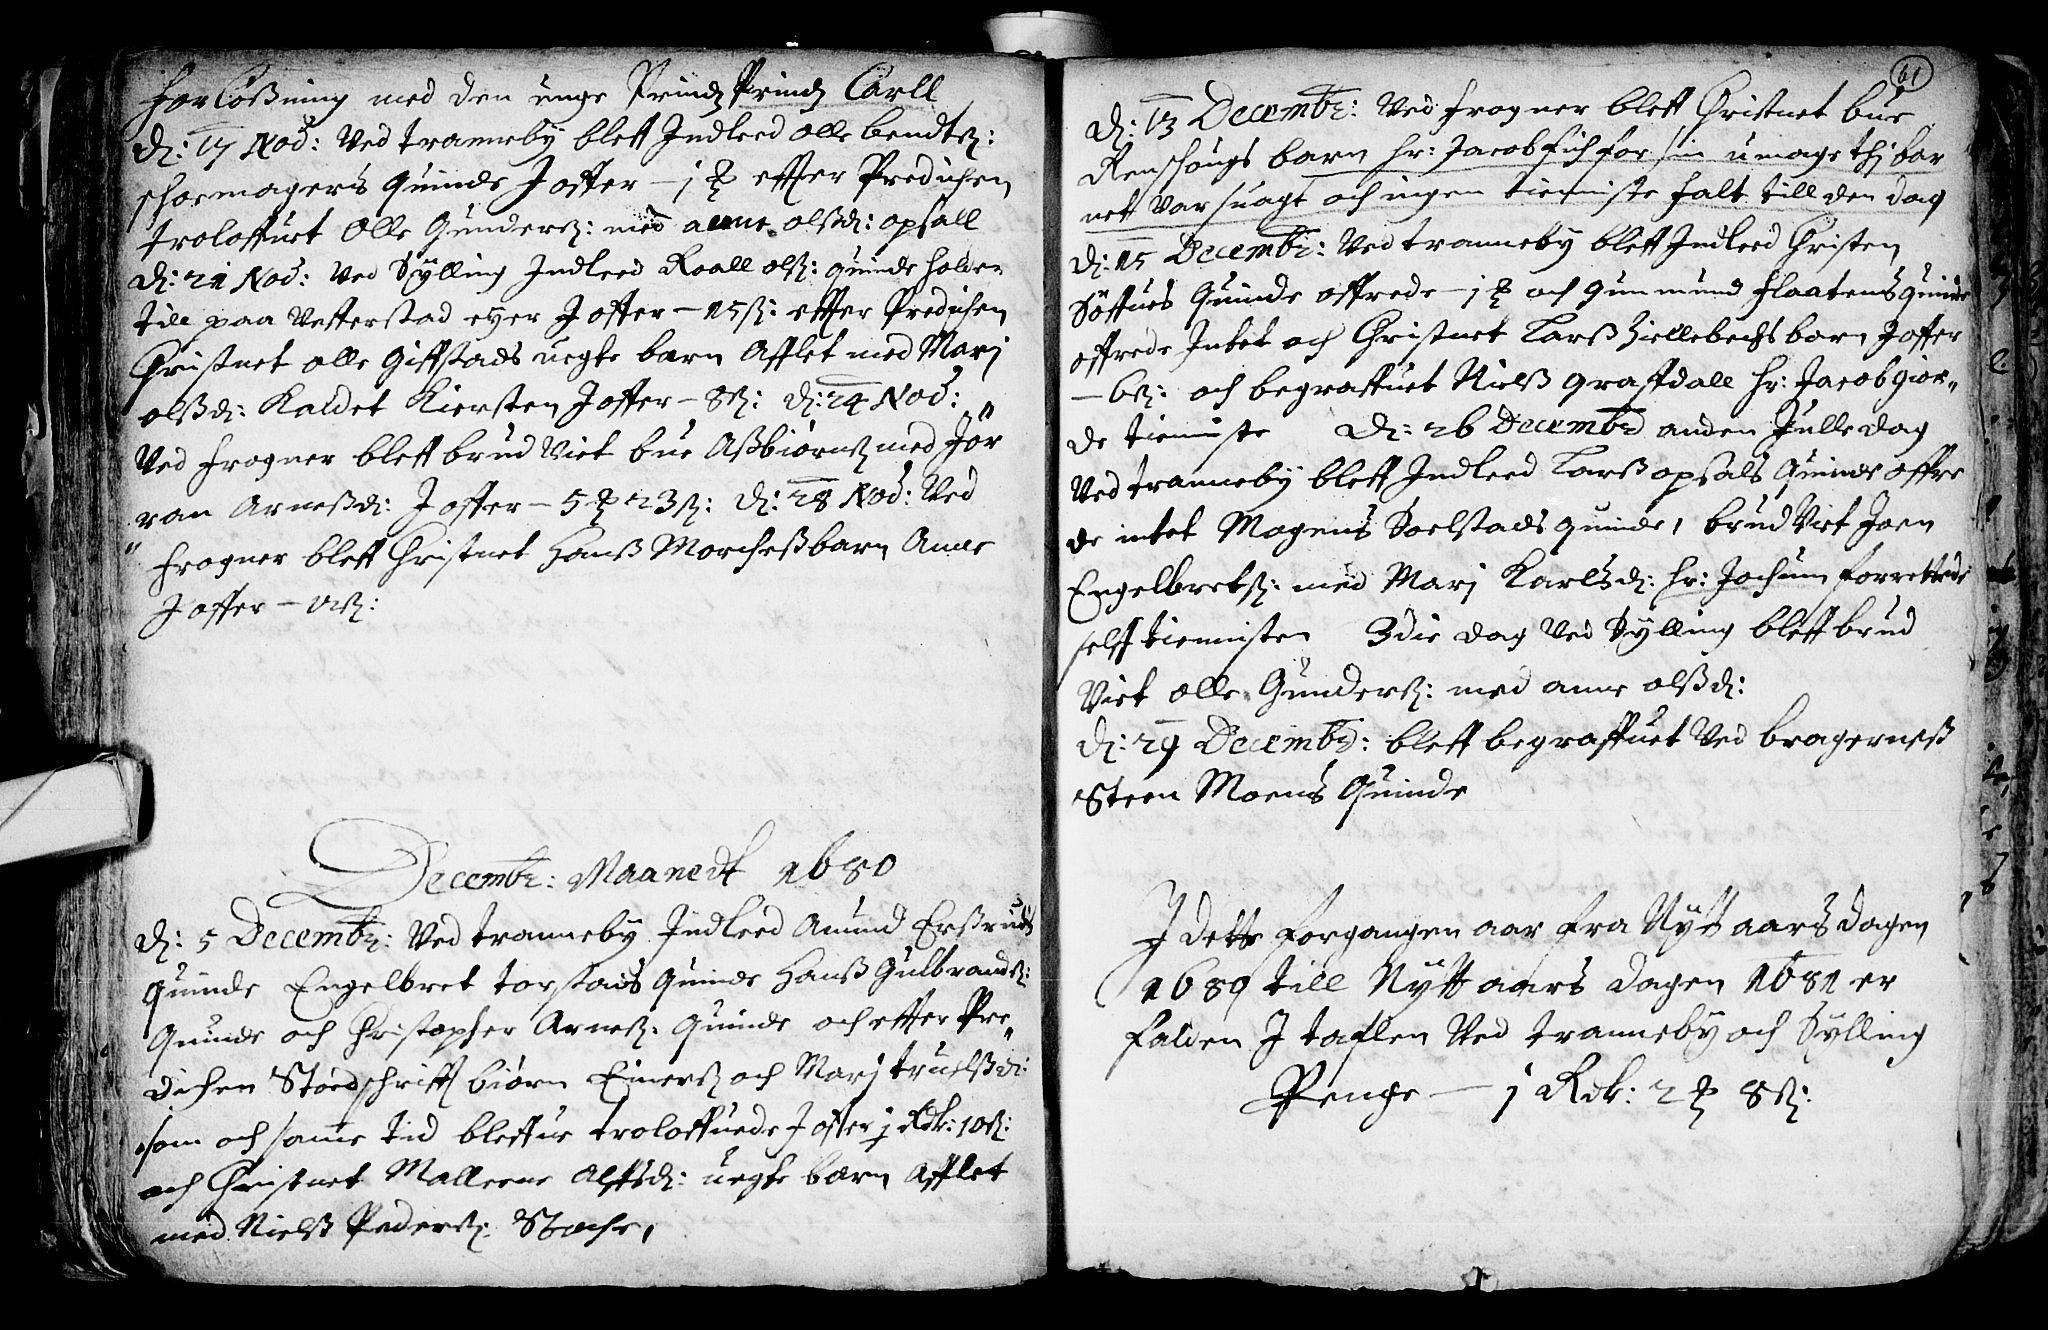 forlößning med den unge Prindz Prindz Carll
d: 17 Nov: Ved tranneby bleff Indleed olle bendtß:
schoemagers quinde J offer – j ʒ effter Predichen
troloffuet Olle Gunderß: med anne olßd: opsall
d: 21 Nov: Ved Sÿlling Indleed Roall olß: quinde holder
till paa Vefferstad eyer J offer – 15 ß: effter Predichen
Christnet olle Giffstads uegte barn Afflet med Marj
olßd: Kaldet Kiersten J offer – 8 ß: d: 24 Nov:
Ved frogner bleff brud Viet bue Aßbiørnß med Jör„
ran Arneßd: J offer – 5 ʒ 23 ß: d: 28 Nov: Ved
„ frogner bleff Christnet Hanß Morcheß barn Anne
J offer – 12 ß:
Decembr: Maanedt 1680
d: 5 Decembr: Ved tranneby Indleed Amund Erßruds
Quinde Engelbret torstads Quinde Hanß Gulbrandß:
Quinde och Christopher Arneß: Quinde och effter Pre„
dichen Stod schrifft biørn Einerß och Marj truelßd:
som och samme tid bleffue troloffuede J offer j Rdr: 10 ß:
och Christnet Malleene Alffsd: uegte barn Afflet
med Nielß Pederß: Stache,
61
d: 13 Decembr: Ved frogner bleff Christnet bue
Renschougs barn hr: Jacob fich for sin umage thj bar
net Var suagt och ingen tienniste falt till den dag
d: 15 Decembr: Ved tranneby bleff Indleed Christen
Söffues Quinde offrede – j ʒ och Gunmund flaatens quinde
offrede Intet och Christnet Larß Ziellebechs barn J offer
– 6 ß: och begraffuet Nielß Graffdall hr: Jacob gior„
de tienniste d: 26 Decembr anden Julle dag
Ved tranneby bleff Indleed Larß opsals Quinde offre
de intet Mogens Soelstads quinde, brud Viet Joen
Engelbretß: med Marj Karlsd: hr: Jochum forrettede
self tiennisten 3die dag Ved Sÿlling bleff brud
Viet olle Gunderß: med anne olßd:
d: 29 Decembr: bleff begraffuet Ved bragerneß
Steen Moens Quinde
J dette forgangen aar fra Nytt aars dagen
1680 till Nÿtt aars dagen 1681 er
falden J taflen Ved tranneby och Sylling
Penge – j Rdr: 2 ʒ 8 ß: